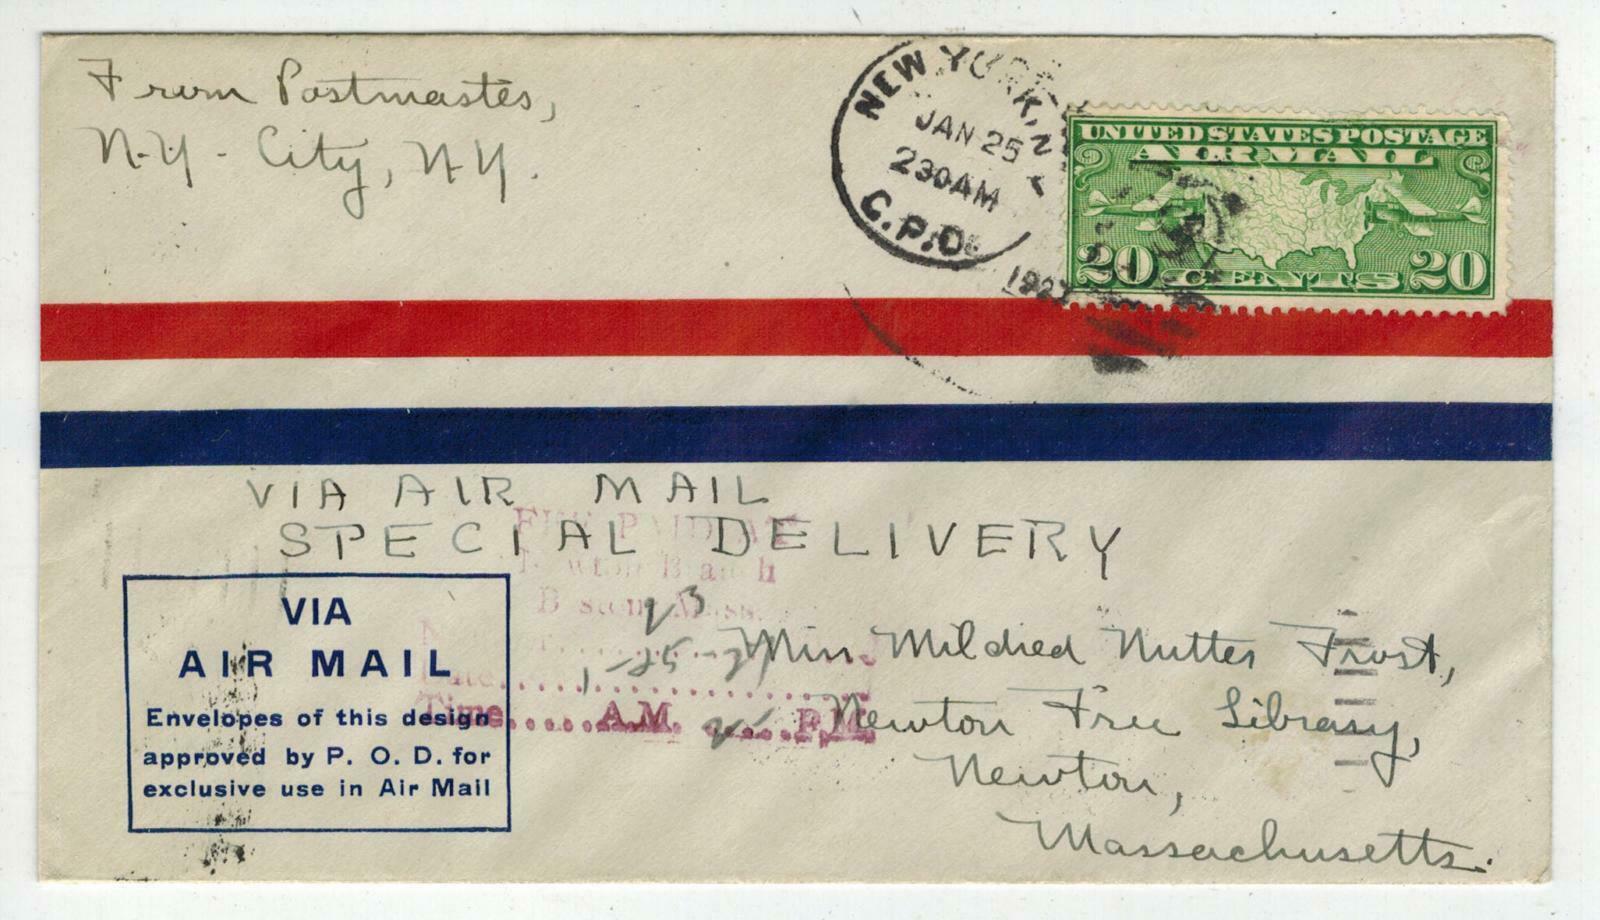 From Postmaster,
N.Y. City, N.Y.
NEW YORK, N.
JAN 25
230AM
G.P.O.
1927
UNITED STATES POSTAGE
AIR MAIL
20 CENTS 20
VIA AIR MAIL
SPECIAL DELIVERY
FEE PAID AT
Newton Branch
Boston, Mass.
Date
Time A.M. P.M.
VIA
AIR MAIL
Envelopes of this design
approved by P. O. D. for
exclusive use in Air Mail
Miss Mildred Nutter Frost,
Newton Free Library,
Newton,
Massachusetts.